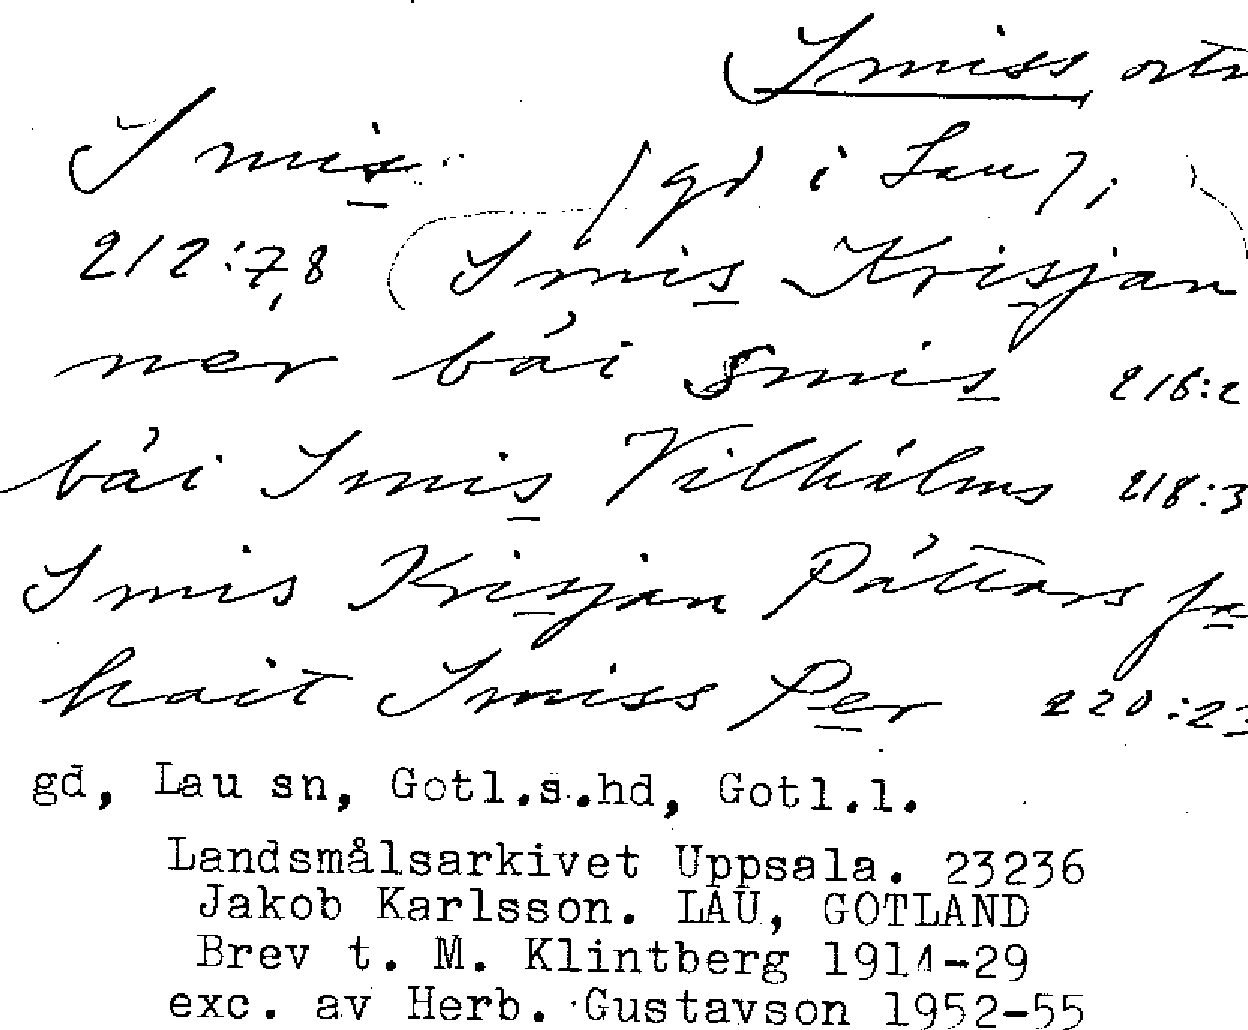 Smiss ortn
Smis
/gd i Lau/;
212:7,8 (Smis Krisjan
ner bái Smis 216:2
bái Smis Vilhálms 218:3
Smis Krisjan Páttars fa
hait Smiss Per 220:23
gd, Lau sn, Gotl.s.hd, Gotl.l.
Landsmålsarkivet Uppsala. 23236
Jakob Karlsson. LAU, GOTLAND
Brev t. M. Klintberg 1914-29
exc. av Herb. Gustavson 1952-55